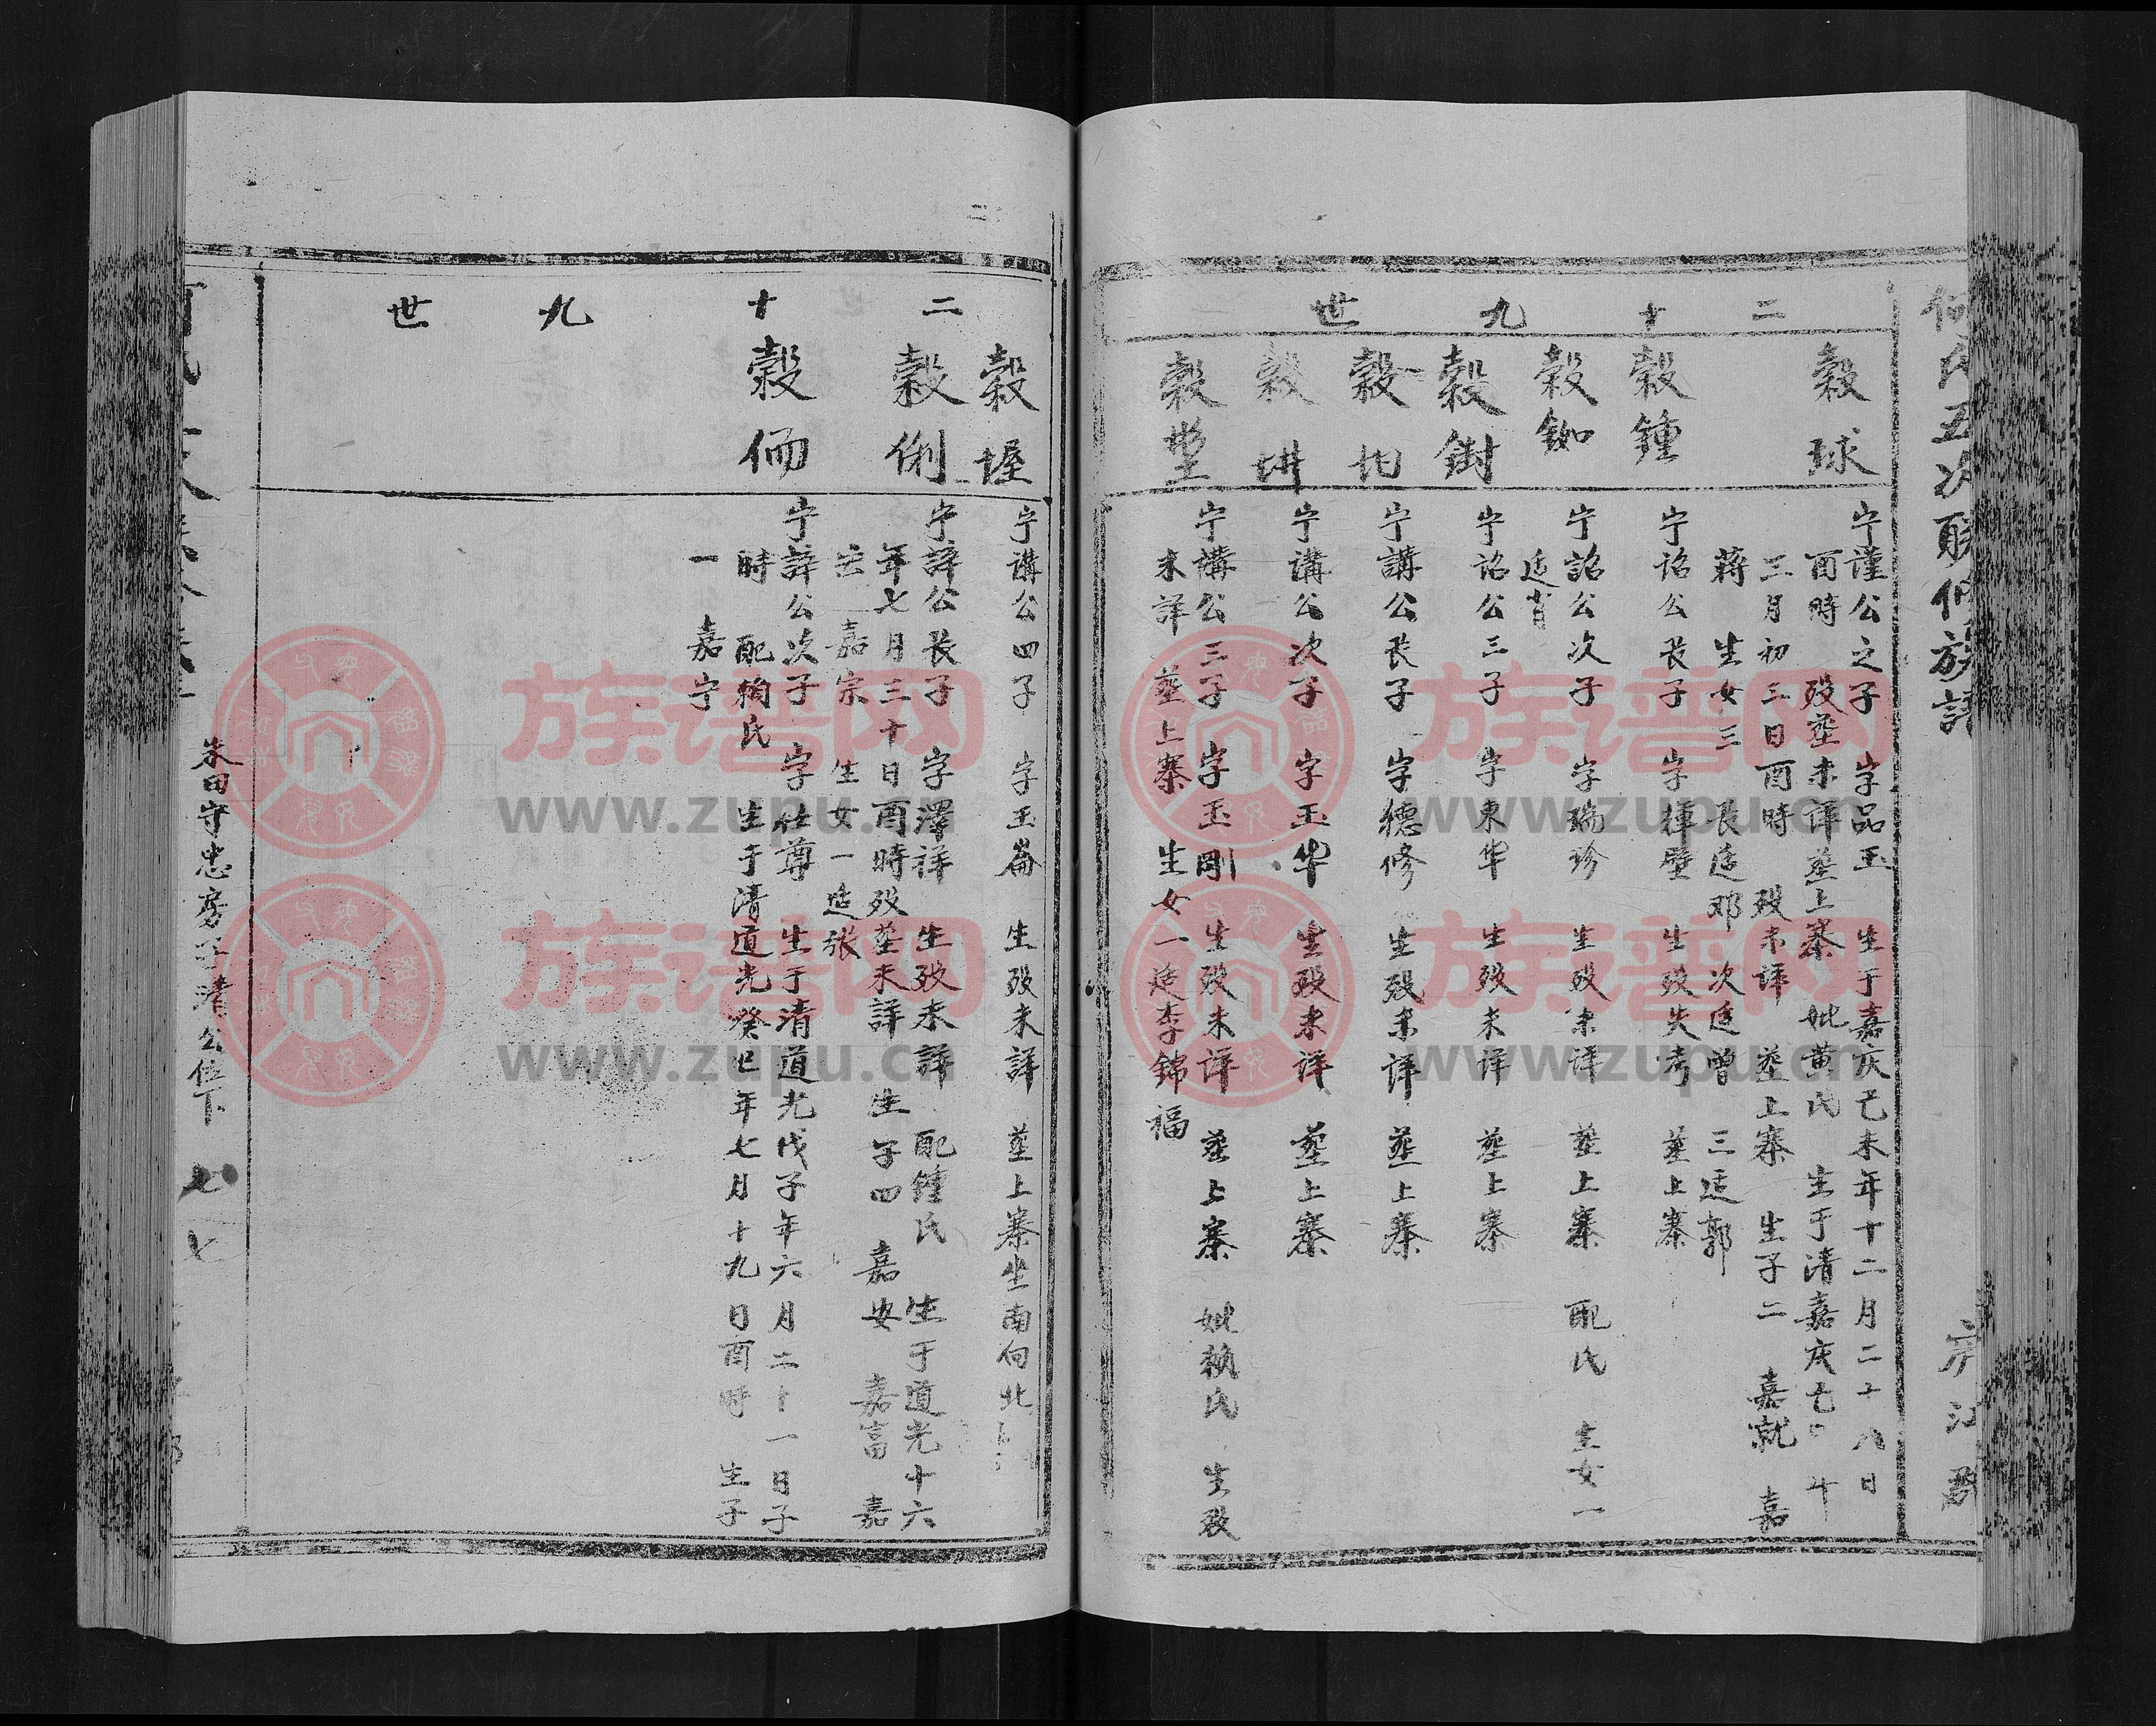 何氏五次联修族譜
二十九世
穀球
宁謹公之子 字品玉 生于嘉庆己未年十二月二十八日
酉時 殁塟未详塟上寨 妣黄氏 生于清嘉庆
三月初三日酉時 殁未详 塟上寨 生子二 嘉就 嘉
蔣 生女三 長适邓 次适曾 三适郭
穀鍾
宁詔公長子 字揮璧 生殁失考 塟上寨
穀鉫
宁詔公次子 字瑞珍 生殁未详 塟上寨 配氏 生女一
适肖
穀鉜
宁詔公三子 字東华 生殁未详 塟上寨
穀均
宁講公長子 字德修 生殁未详 塟上寨
穀垪
宁講公次子 字玉华 生殁未详 塟上寨
穀
宁講公三子 字玉剛 生殁未详 塟上寨 妣賴氏 生殁
未詳 塟上寨 生女一适李錦福
二十九世
穀握
宁講公四子 字玉崙 生殁未詳 塟上寨坐南向北
穀俐
宁諱公長子 字澤祥 生殁未詳 配鍾氏 生于道光十六
年七月三十日酉時殁塟未詳 生子四 嘉安 嘉富 嘉
芸 嘉宗 生女一 适張
穀侕
宁諱公次子 字仕尊 生于清道光戊子年六月二十一日子
時 配賴氏 生于清道光癸巳年七月十九日酉時 生子
一 嘉宁
朱田守忠房 清公位下
七七
族谱网
www.zupu.cn
族谱网
www.zupu.cn
族谱网
www.zupu.cn
族谱网
www.zupu.cn